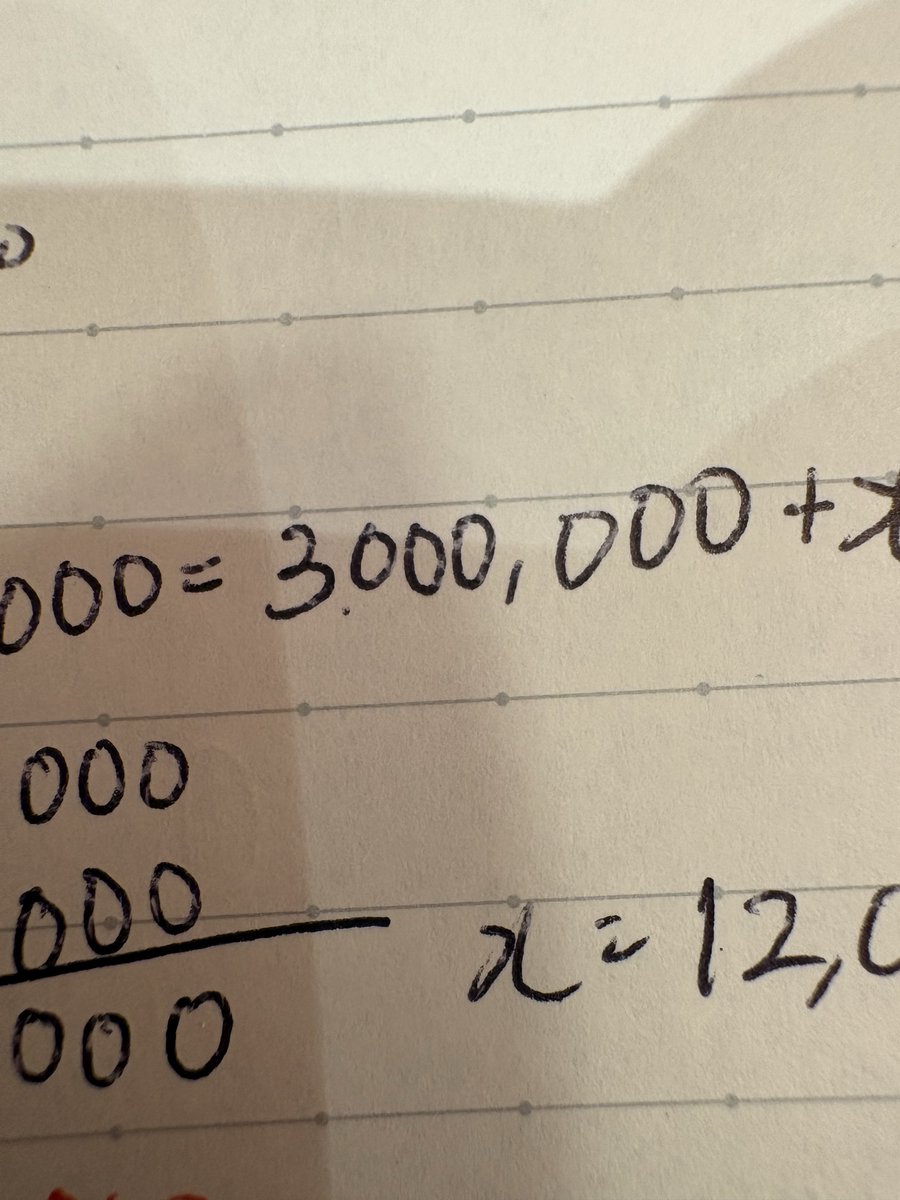 000 = 3.000,000 + x
000
000
x = 12,0
000